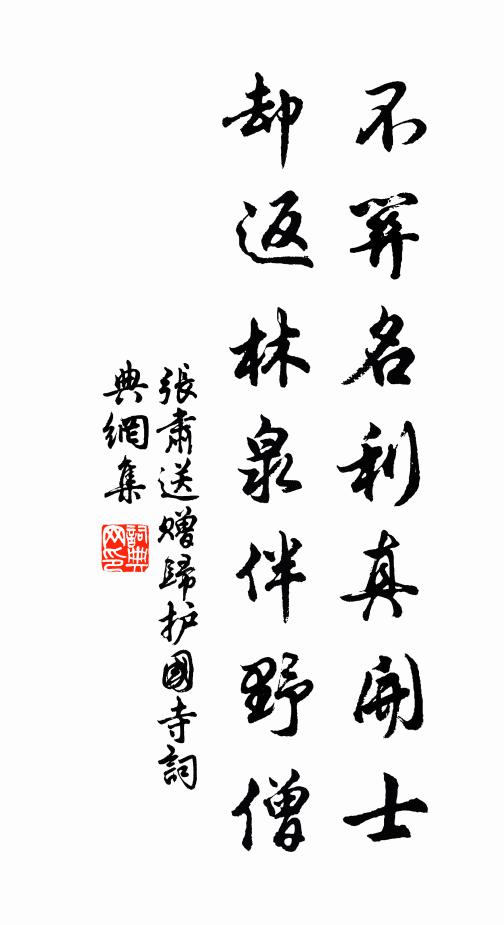 不名利真開士
却返林泉伴野僧
張肅送贈歸护國寺詞
典網集
詞典
网印